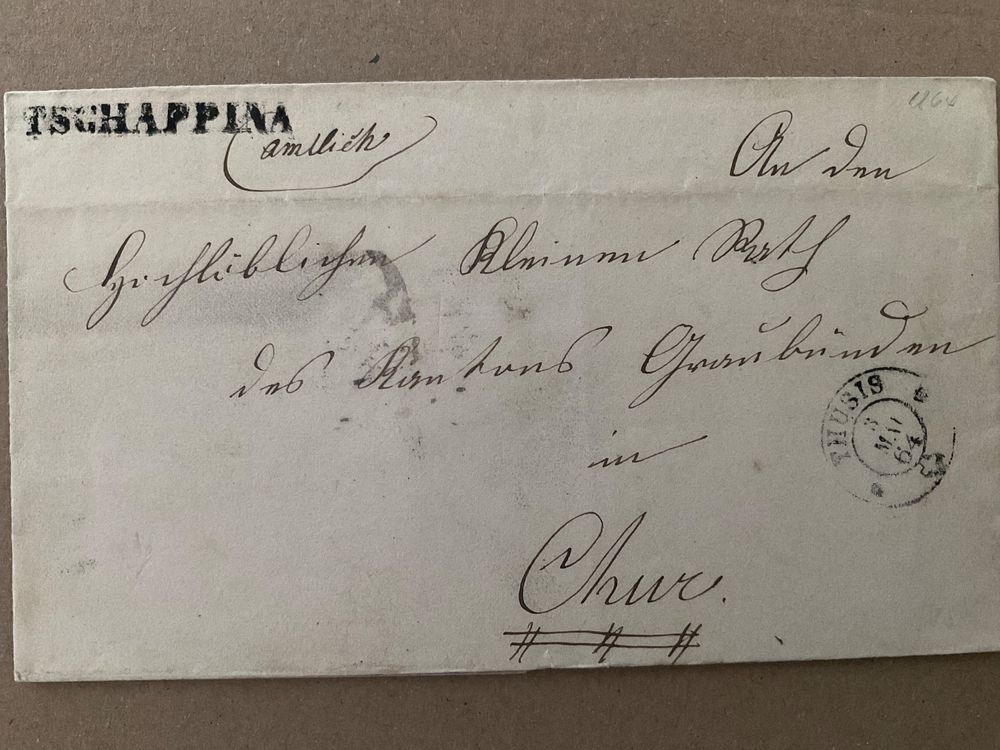 TSCHAPPINA
amtlich
An den
Hochlöblichen Kleinen Rath
des Kantons Graubünden
in
Chur.
THUSIS
64